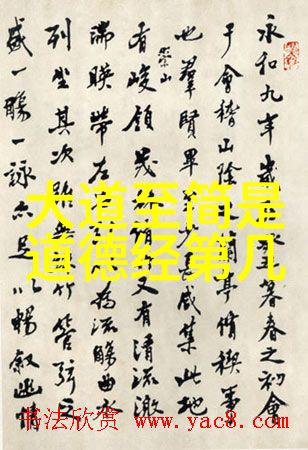 永和九年歲暮春之初會
于會稽山陰蘭亭脩稧事
也羣賢畢咸集此地
有崇山峻領茂林脩又有清流激
湍暎帶左為流觴曲水
列坐其次雖無竹管弦之
盛一觴一詠亦足以暢敘幽情
大道至简是
道德经第几
书法欣赏 www.yac8.com